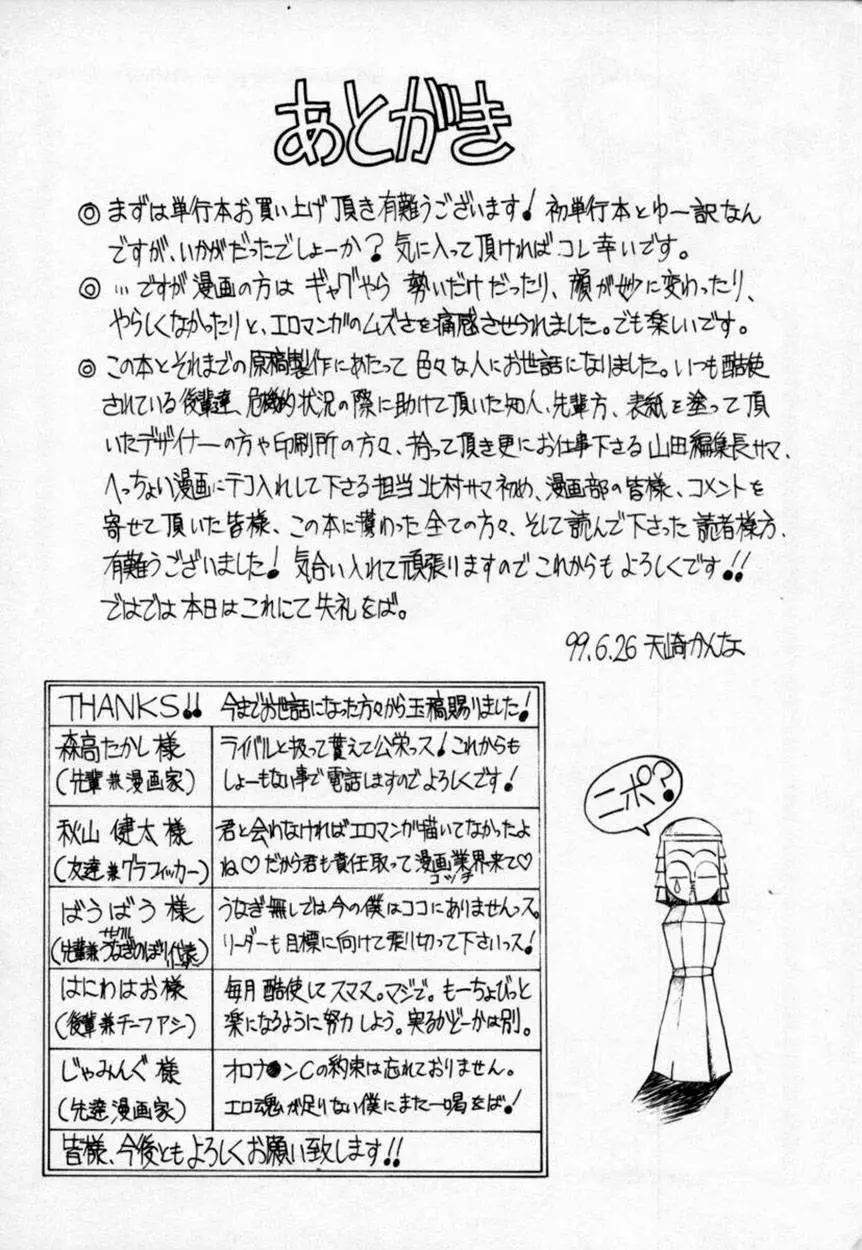 あとがき
◎ まずは単行本お買い上げ頂き有難うございます! 初単行本とゆー訳なん
ですが、いかがだったでしょーか? 気に入って頂ければコレ幸いです。
◎ …ですが漫画の方は ギャグやら 勢いだけだったり、顔が妙に変わったり、
やらしくなかったりと、エロマンガのムズさを痛感させられました。でも楽しいです。
◎ この本とそれまでの原稿製作にあたって 色々な人にお世話になりました。いつも酷使
されている後輩達、危機的状況の際に助けて頂いた知人、先輩方、表紙を塗って頂
いたデザイナーの方や印刷所の方々、拾って頂き更にお仕事下さる 山田編集長サマ、
へっちょい漫画にテコ入れして下さる担当 北村サマ初め、漫画部の皆様、コメントを
寄せて頂いた皆様、この本に携わった全ての方々、そして読んで下さった 読者様方、
有難うございました! 気合い入れて頑張りますので これからも よろしくです!!
ではでは本日はこれにて失礼をば。
99.6.26 天崎かんな
THANKS!! 今までお世話になった方々から玉稿賜りました!
森高たかし 様
(先輩兼漫画家)
ライバルと扱って貰えて公栄っス! これからも
しょーもない事で電話しますのでよろしくです!
秋山 健太 様
(友達兼グラフィッカー)
君と会わなければエロマンガ描いてなかったよ
ね♡ だから君も責任取って漫画業界来て♡
コッチ
ばうばう 様
サークル
(先輩兼うなぎのぼり代表)
うなぎ無しでは今の僕はココにありませんっス。
リーダーも目標に向けて張り切って下さいっス!
はにわはお様
(後輩兼チーフアシ)
毎月酷使してスマヌ。マジで。もーちょびっと
楽になるように努力しよう。実るかどーかは別。
じゃみんぐ 様
(先達漫画家)
オロナ●ンCの約束は忘れておりません。
エロ魂が足りない僕にまた一喝をば!
皆様、今後ともよろしくお願い致します!!
ニポ?